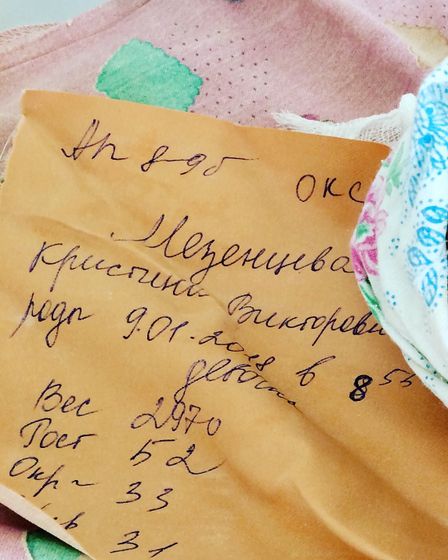 Ап 8-9б
ОКС
Мезенцева
Кристина Викторовн
роды 9.01.2018 в 8 55
Вес 2970
Рост 52
Окр г 33
31